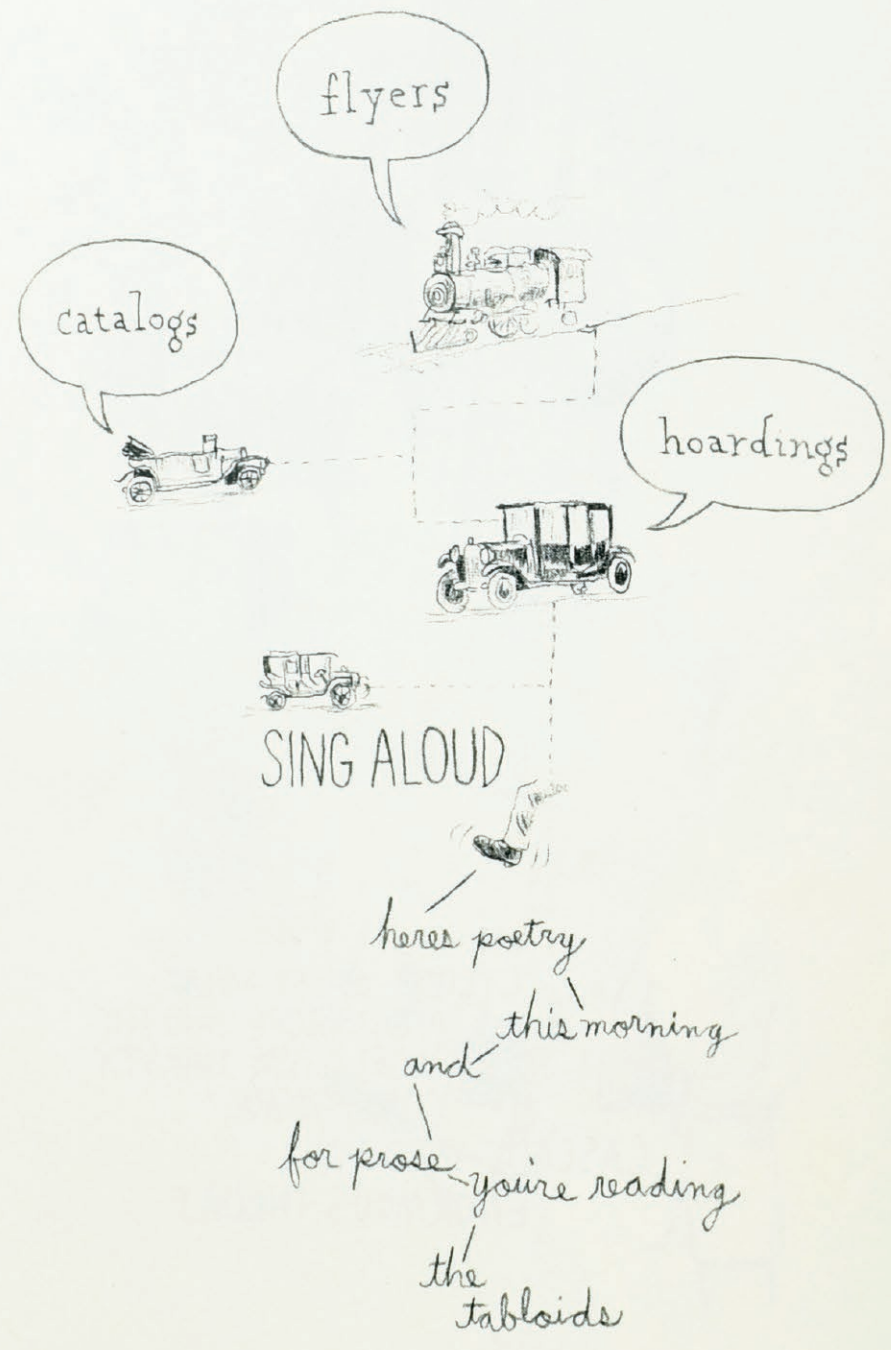 flyers
catalogs
hoardings
SING ALOUD
heres poetry
this morning
and
for prose
you're reading
the
tabloids